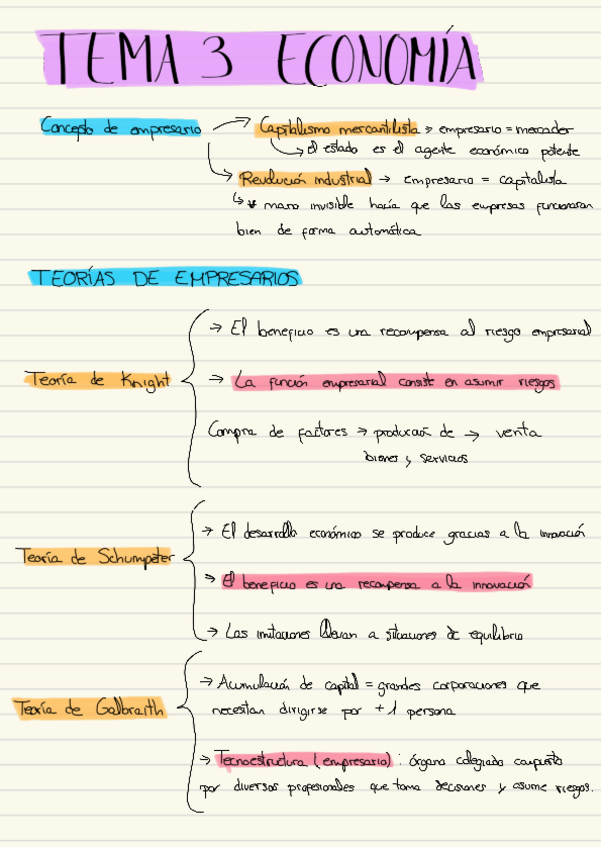 TEMA 3 ECONOMÍA
Concepto de empresario → Capitalismo mercantilista → empresario = mercader
→ el estado es el agente económico potente
→ Revolución industrial → empresario = capitalista
↳ mano invisible hacía que las empresas funcionaran
bien de forma automática
TEORÍAS DE EMPRESARIOS
→ El beneficio es una recompensa al riesgo empresarial
Teoría de Knight → La función empresarial consiste en asumir riesgos
Compra de factores → producción de → venta
bienes y servicios
→ El desarrollo económico se produce gracias a la innovación
Teoría de Schumpeter
→ El beneficio es una recompensa a la innovación
→ Las imitaciones llevan a situaciones de equilibrio
→ Acumulación de capital = grandes corporaciones que
Teoría de Galbraith necesitan dirigirse por +1 persona
→ Tecnoestructura (empresario): órgano colegiado compuesto
por diversos profesionales que toma decisiones y asume riesgos.